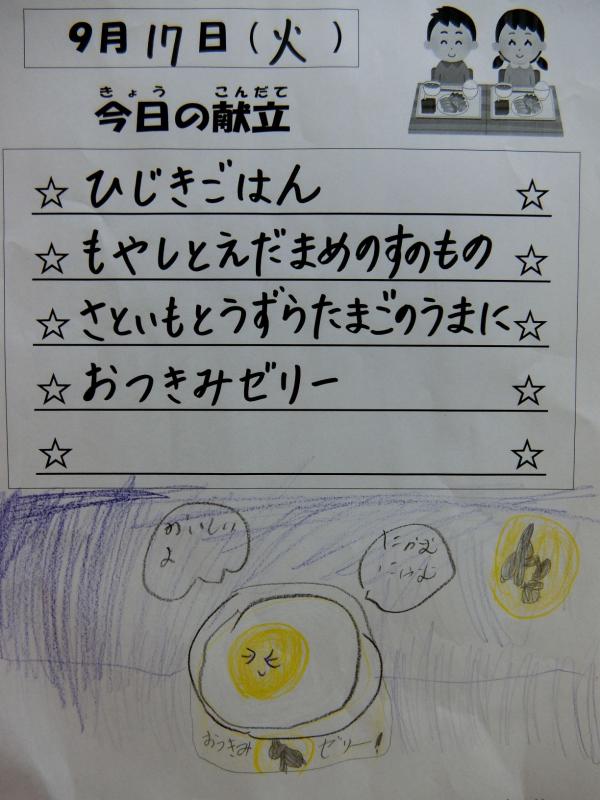 9月17日(火)
きょう こんだて
今日の献立
☆ ひじきごはん ☆
☆ もやしとえだまめのすのもの ☆
☆ さといもとうずらたまごのうまに ☆
☆ おつきみゼリー ☆
☆ ☆
おいしい
よ
おつきみ ゼリー!